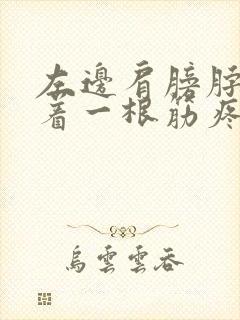 左邊肩膀脖
着一根筋疼
烏雲雲吞